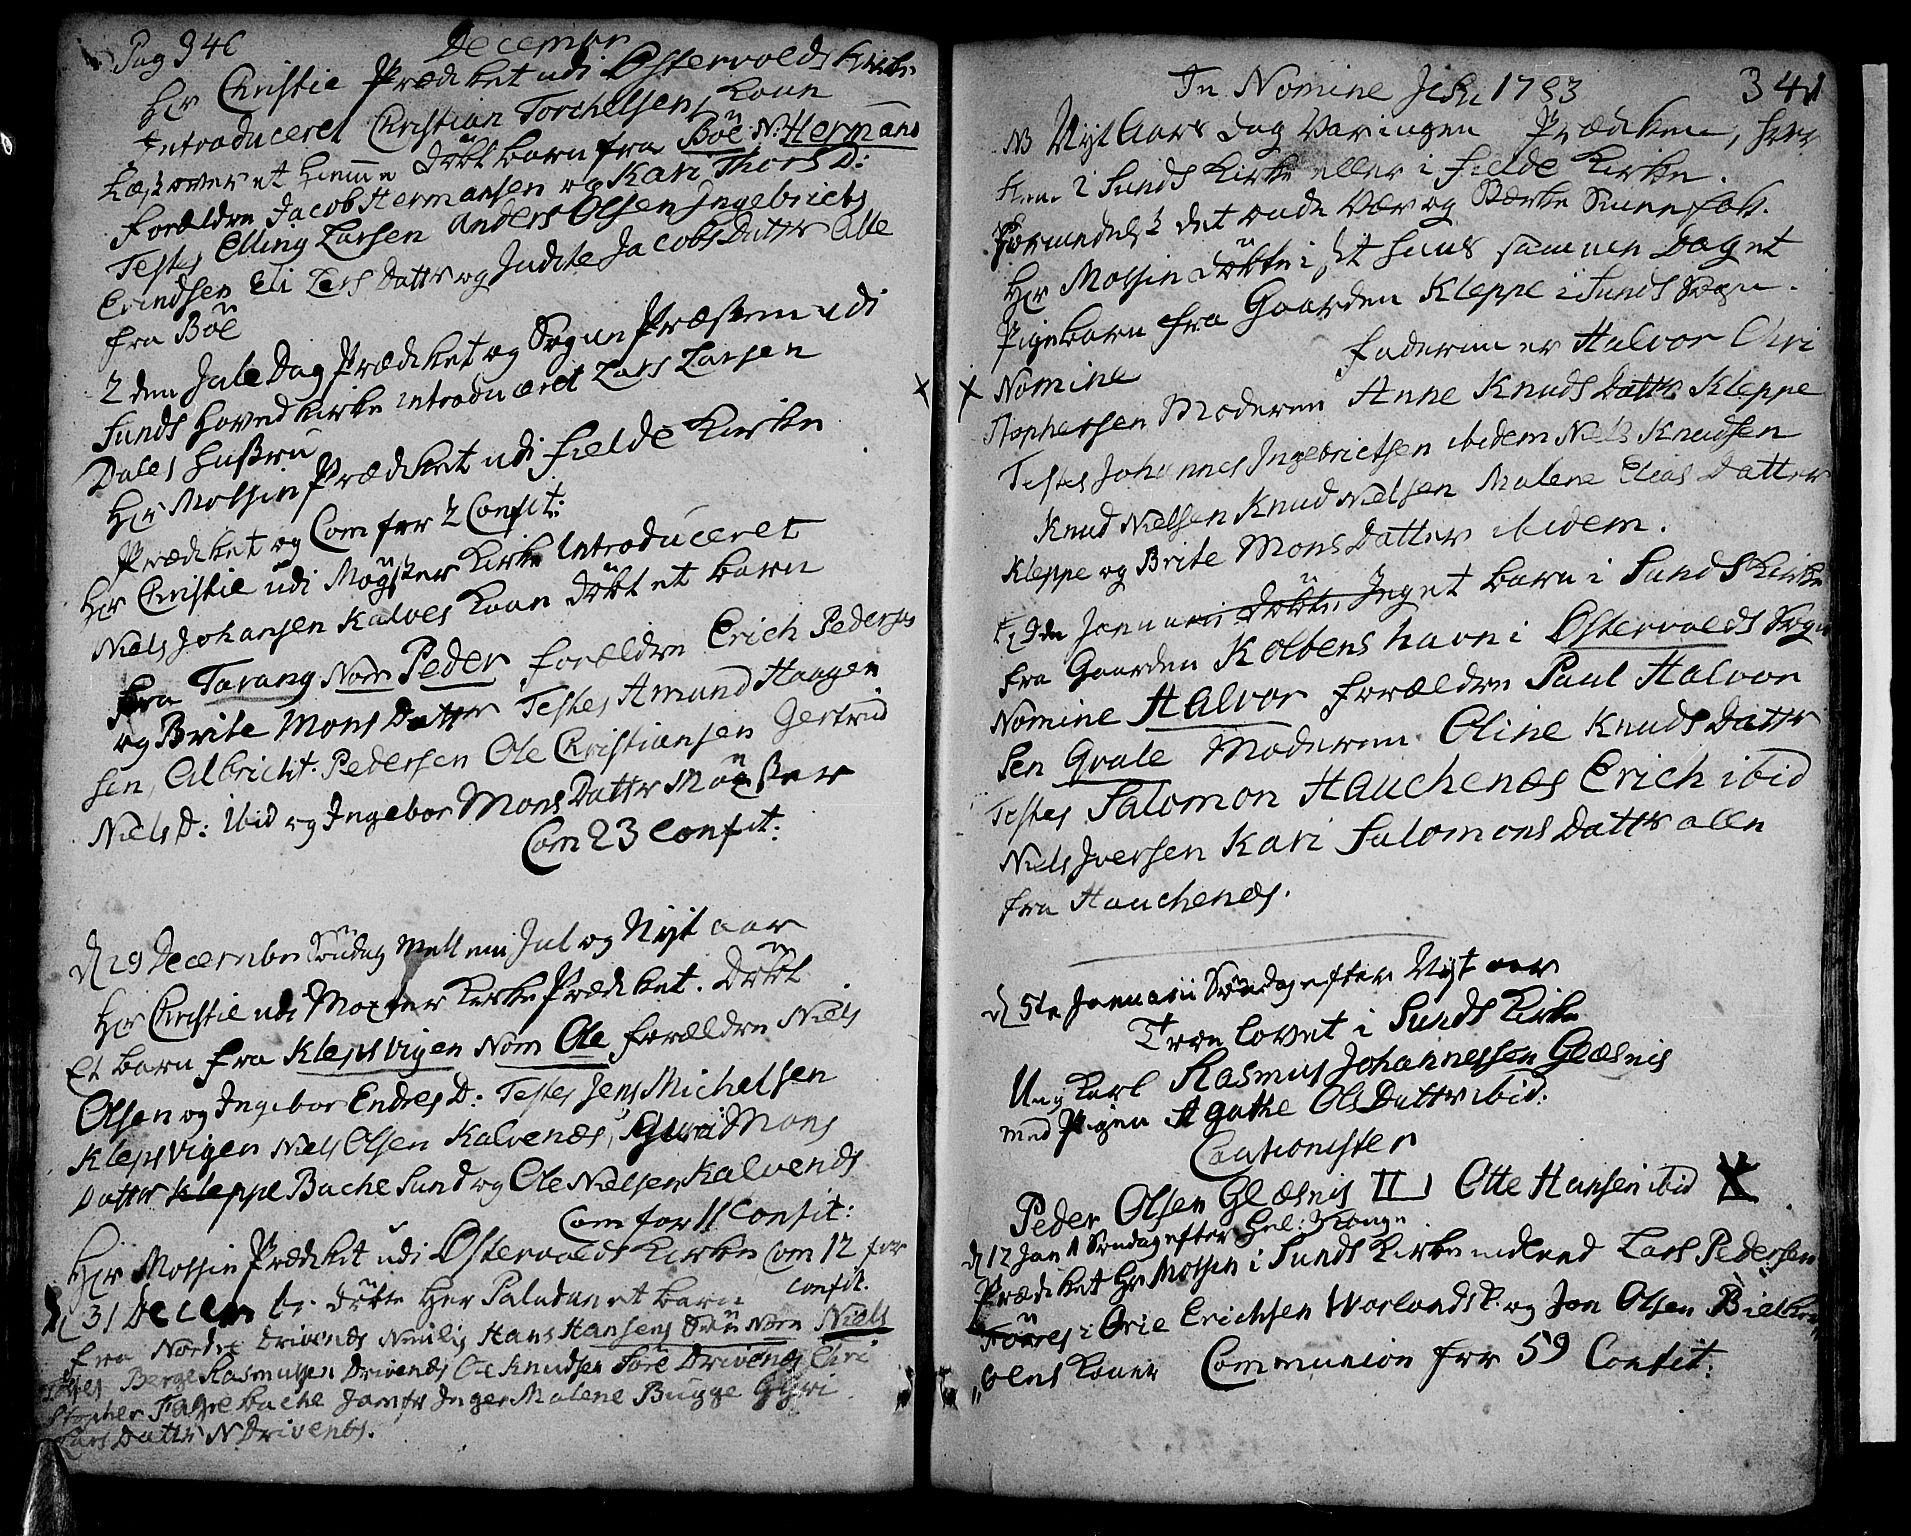 Pag 340
Decembr
Hr Christie Prædiket udi Østervolds Kirke
Introduceret Christian Torchelsens Kone
Læst over et hieme Døbt barn fra Böe N: Hermand
Forældre Jacob Hermansen og Kari Thors D:
Testes Elling Larsen Anders Olsen Ingebricht
Erindsen Eli Lars Datter og Judite Jacobs Datter alle
fra Böe
2 den Jule Dag Prædiket og Sogne Præsten udi
Sunds Hoved Kirke introduceret Lars Larsen
Dales Hustru
Hr Mossin Prædiket udi Fielde Kirke
Prædiket og Com for 2 Confit:
Hr Christie udi Mögster Kirke Introduceret
Niels Johansen Kalves Kone Döbt et barn
fra Tarang Nom Peder forældre Erich Peders
og Brite Mons Datter Testes Amund Haagen
sen, Albricht Pedersen Ole Christiansen Gertrud
Niels D: ibid og Ingebor Mons Datter Mögster
Com 23 Confit:
d 29 December Söndag Mellem Jul og Nyt aar
Hr Christie udi Moxter Kirke Prædiket. Döbt
Et barn fra Klepsvigen Nom Ole forældre Niels
Olsen og Ingebor Endres D: Testes Jens Michelsen
Klepsvigen Niels Olsen Kalvenæs, Guri Mons
Datter Kleppe Bache Sund og Ole Nielsen Kalvenæs
Com for 11 Confit:
Hr Mossin Prædiket udi Østervolds Kirke Com 12 for
confit.
d 31 Decem br. döbte Her Paludan et barn
fra Nordre Drivenes Nemlig Hans Hansens Sön Nom Niels
Testes Berge Rasmusen Drivenes Ole Knudsen Fore Drivenes Chri
stopher Fagrebache Jomfr Inger Malene Bugge Guri
Lars Datter N Drivenes.
In Nomine Jesu 1783 341
NB Nyt Aars Dag Var ingen Prædiken, her
ken i Sunds Kirke eller i Fielde Kirke.
Formedelst det onde Vær og Stærke Snee fok.
Hr Mossin döbte i sit Huus samme Dag et
Pigebarn fra Gaarden Kleppe i Sunds Sogn.
Nomine Faderen er Halvor Chri
stophersen Moderen Anne Knuds Datter Kleppe
Testes Johannes Ingebrictsen ibidem Niels Knudsen
Knud Nielsen Knud Nielsen Malene Elias Datter
Kleppe og Brite Mons Datter ibidem.
Januarii döbte Jeg et barn i Sunds Kirke
fra Gaarden Kolbens havn i Østervolds Sogn
Nomine Halvor forældre Paul Halvor
sen Qvale Moderen Oline Knuds Datter
Testes Salomon Hauchenæs Erich ibid
Niels Iversen Kari Salomons Datter alle
fra Hauchenæs.
d 5te Januarii Söndag efter Nyt aar
Troe lovet i Sunds Kirke
Ung Karl Rasmus Johannessen Glæsnis
med Pigen Agathe Ols Datter ibid.
Cautionister
Peder Olsen Glæsnis Otte Hansen ibid
d 12 Jan 1 Söndag efter Hel: 3 Konge
Prædiket Hr Mossin i Sunds Kirke indled Lars Pedersen
i Orie Erichsen Vorlands. og Jon Olsen
Koner Communion for 59 Confit: